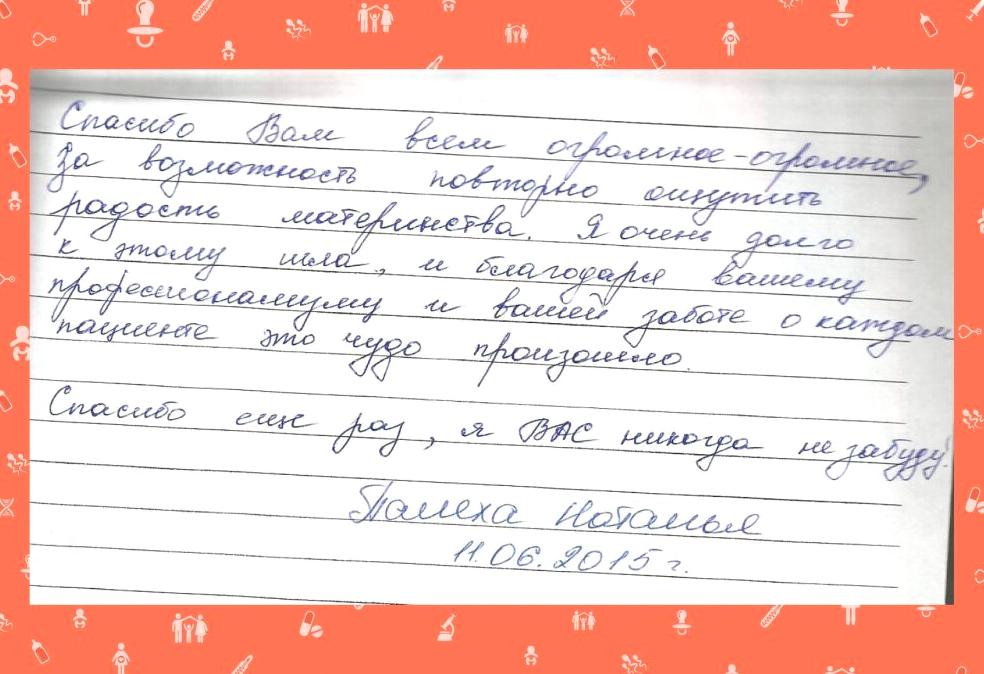 Спасибо Вам всем огромное-огромное,
За возможность повторно ощутить
радость материнства. Я очень долго
к этому шла, и благодаря вашему
профессионализму и вашей заботе о каждом
пациенте это чудо произошло.
Спасибо еще раз, я ВАС никогда не забуду!
Наталья
11.06.2015 г.